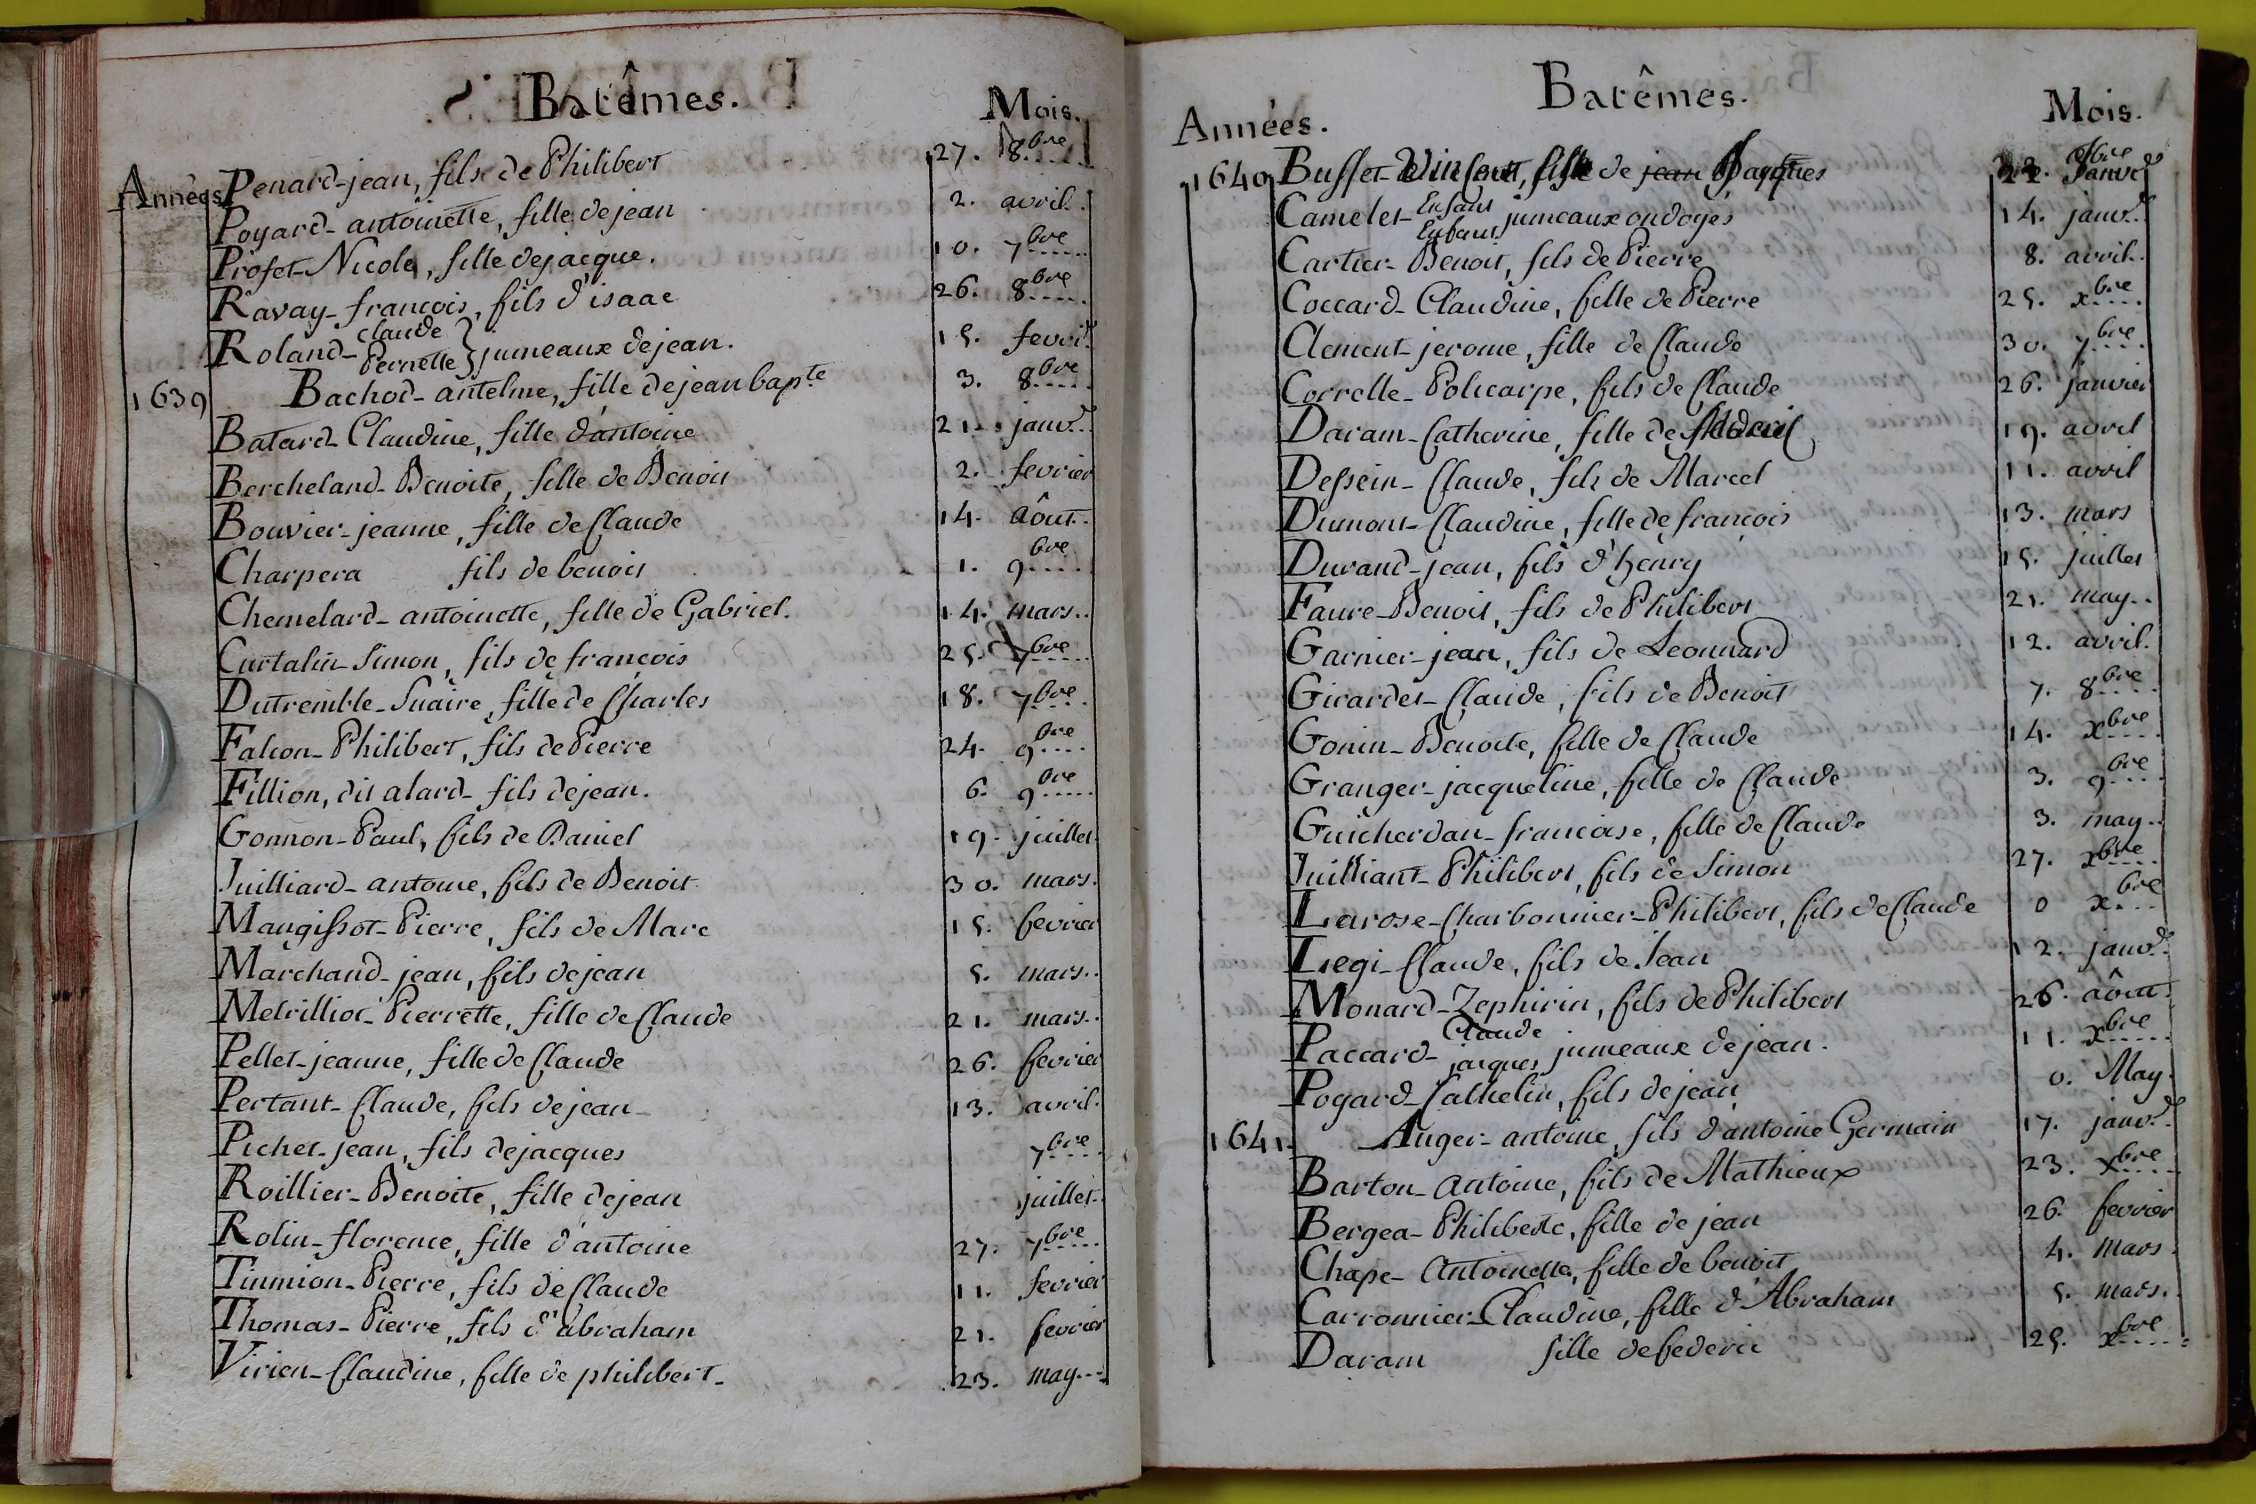 Batêmes.
Mois.
Années
Penard-jean, fils de Philibert 27. 8bre
Poyard-antoinette, fille de jean 2. avril.
Profet-Nicole, fille de jacque. 10. 7bre
Ravay-françois, fils d'isaac 26. 8bre
Roland- claude Pernette } jumeaux de jean. 15. fevrr.
1639 Bachod-antelme, fille de jean bapte 3. 8bre
Batard-Claudine, fille d'antoine 21. janvr.
Bercheland-Benoite, fille de Benoit 2. fevrier
Bouvier-jeanne, fille de Claude 14. Aôut.
Charpera fils de benoit 1. 9bre
Chemelard-antoinette, fille de Gabriel. 14. mars.
Curtalin-Simon, fils de françois 25. 7bre
Dutremble-Suaire, fille de Charles 18. 7bre
Falion-Philibert, fils de Pierre 24. 9bre
Fillion, dit alard-fils de jean. 6. 9bre
Gonnon-Paul, fils de Daniel 19. juillet.
Juilliard-antoine, fils de Benoit 30. mars.
Mangissot-Pierre, fils de Marc 15. fevrier
Marchand-jean, fils de jean 5. mars.
Metrilliot-Pierrette, fille de Claude 21. mars.
Pellet-jeanne, fille de Claude 26. fevrier
Pertant-Claude, fils de jean 13. avril.
Pichet-jean, fils de jacques 7bre
Roillier-Benoite, fille de jean juillet.
Rolin-florence, fille d'antoine 27. 7bre
Tinmion-Pierre, fils de Claude 11. fevrier
Thomas-Pierre, fils d'abraham 21. fevrier
Virien-Claudine, fille de philibert- 23. may
Batêmes.
Années. Mois.
1640 Busset- de jean Jacques
Camelet- Enfant Enfant jumeaux ondoyés 14. janvr.
Cartier-Benoit, fils de Pierre 8. avril.
Coccard-Claudine, fille de Pierre 25. xbre
Clement-jerome, fille de Claude 30. 7bre
Correlle-Policarpe, fils de Claude 26. janvier
Daram-Catherine, fille de 19. avril
Dessein-Claude, fils de Marcel 11. avril
Dumont-Claudine, fille de françois 13. mars
Durand-jean, fils d'henry 15. juillet
Faure-Benoit, fils de Philibert 21. may.
Garnier-jean, fils de Leonnard 12. avril.
Girardet-Claude, fils de Benoit 7. 8bre
Gonin-Benoite, fille de Claude 14. xbre
Granger-jacqueline, fille de Claude 3. 9bre
Guicherdan-francoise, fille de Claude 3. may.
Juilliant-Philibert, fils de Simon 27. xbre
Larose-Charbonnier-Philibert, fils de Claude 0 xbre
Liegi-Claude, fils de Jean 12. janvr.
Monard-Zephirin, fils de Philibert 26. aôut.
Paccard- Claude jacques jumeaux de jean. 11. xbre
Pogard-Cathelin, fils de jean 0. May.
1641. Auger-antoine, fils d'antoine Germain 17. janvr.
Barton-Antoine, fils de Mathieux 23. xbre
Bergea-Philiberte, fille de jean 26. fevrier
Chape-Antoinette, fille de benoit 4. Mars.
Carronnier-Claudine, fille d'Abraham 5. mars.
Daram fille de federic 25. xbre